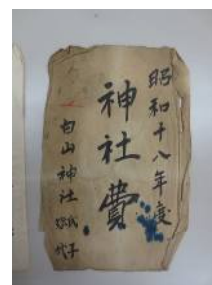 昭和十八年度
神社費
白山神社総代
氏子